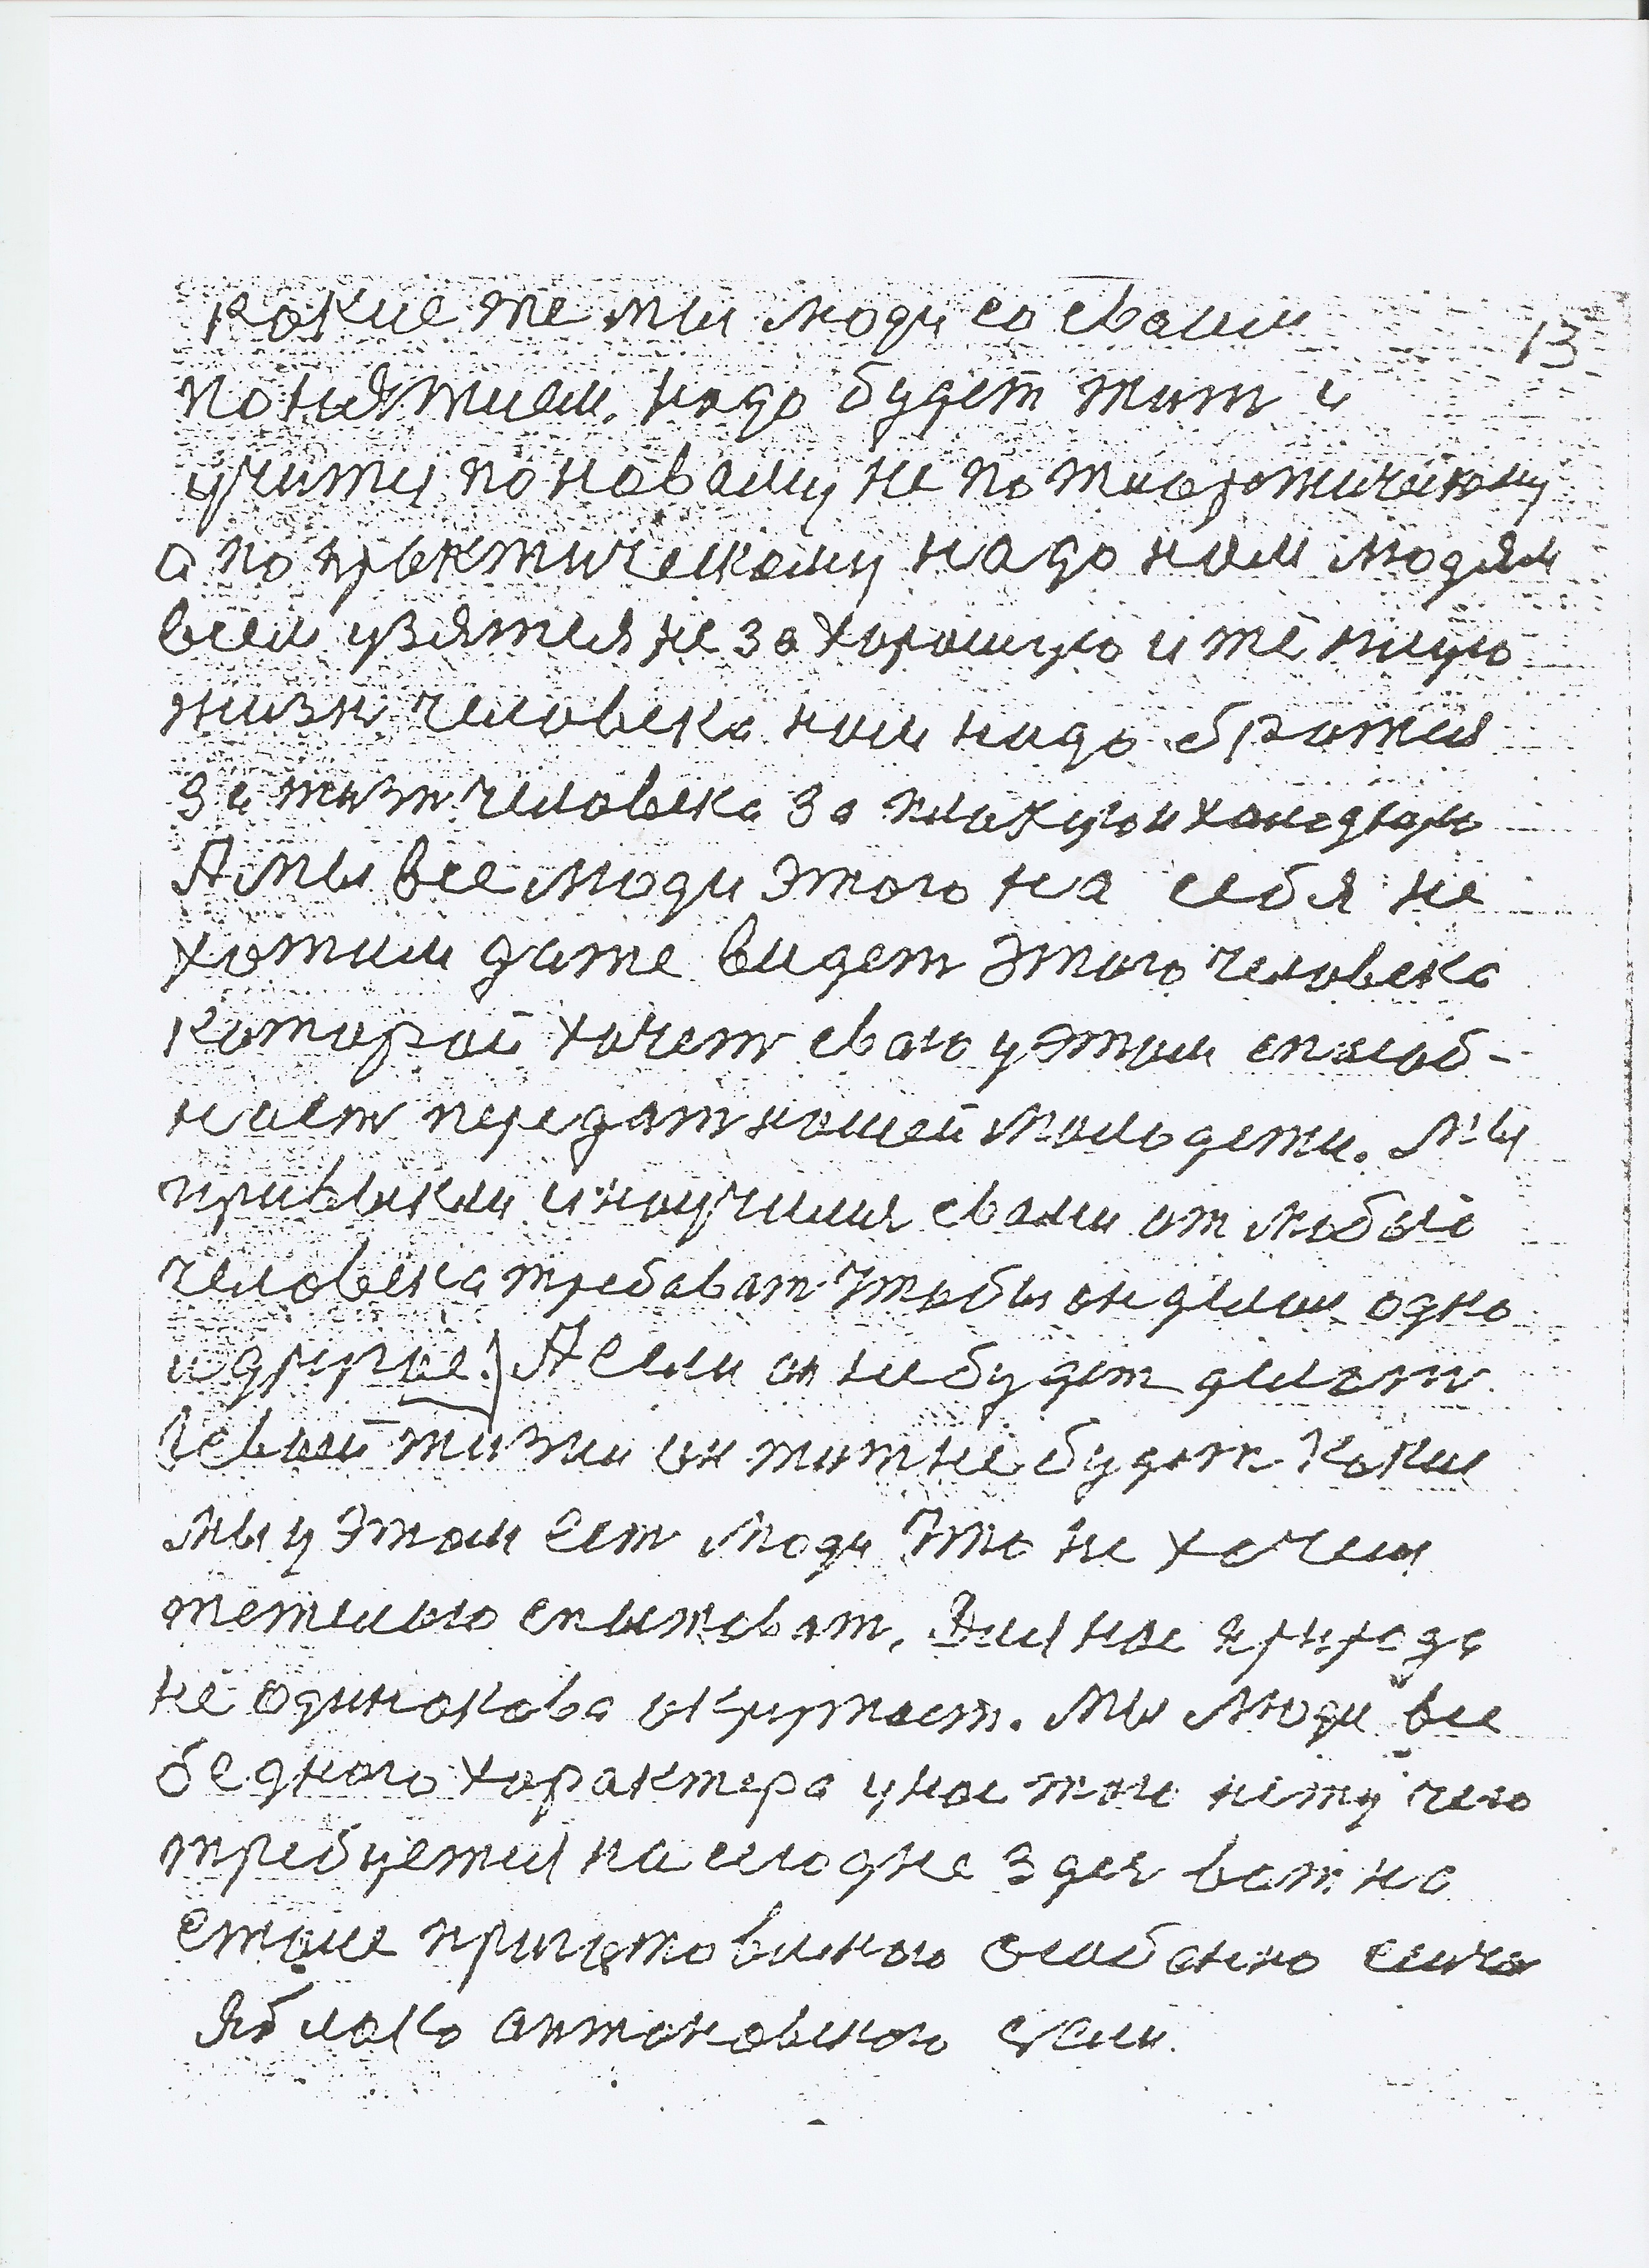 какие же мы люди со сваим
13
понятием. надо будет жит и
учитя по новаму не по тиеротическому
а по практическому надо нам людям
всем узятся не за хорошую и тёплую
жизн человека нам надо братся
за жизн человека за плохую и холодную
А мы все люди этого на себя не
хотим даже видет этого человека
каторай хочет сваю у этим способ-
ност передат нашей молодежи. Мы
привыкли и научился сваим от любого
человека требават чтобы он делал одно
и другое. А если он не будет делат
в сваей жизни он жит не будет. Каки
мы у этом ест люди что не хочем
тежолаю спытоват. Вил нас природа
не одинокава окружает. Мы люди все
беднаго характера у нас таго нету чего
требуется на сегодне здес вот на
стале приготовиного особенно
яблоко антоновского сами.